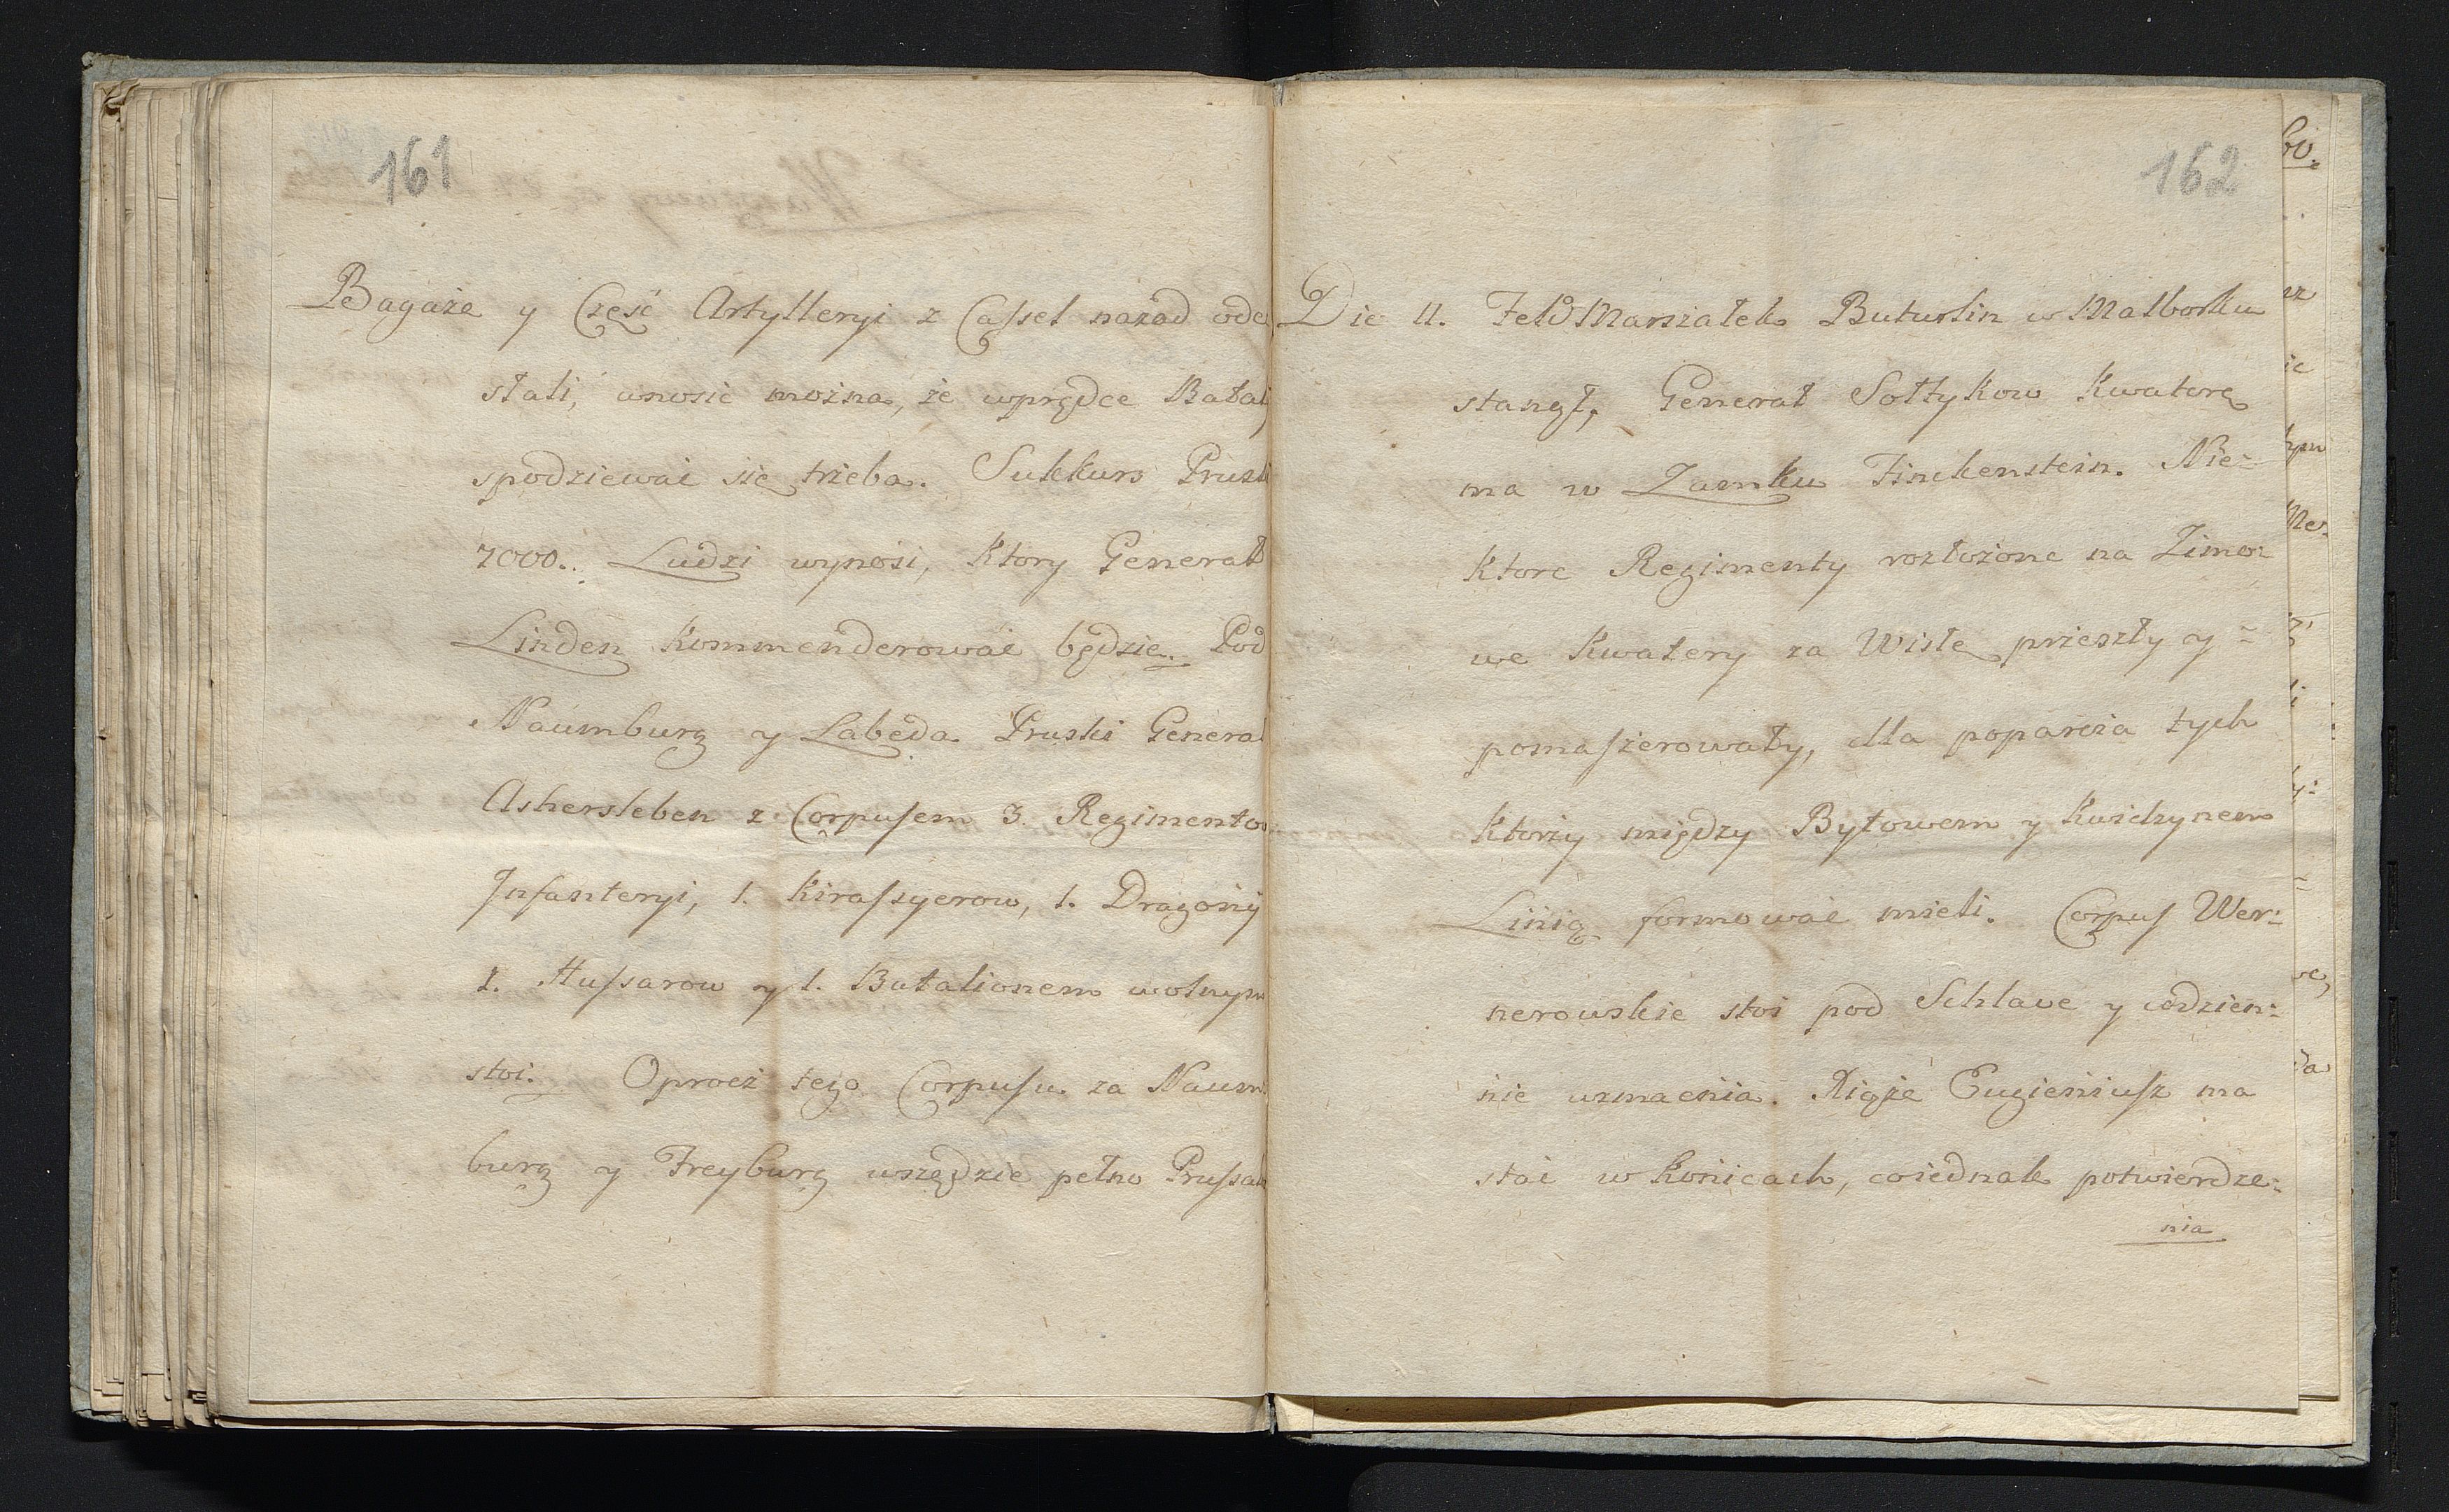 161
Bagaże y Część Artylleryi z Cassel nazad ode
słali, wnosić można, że wprędce Batal
spodziewać się trzeba. Sukkurs Prusk
7000. Ludzi wynosi, ktory Generał
Linden kommenderować będzie. Pod
Naumburg y Labeda Pruski General
Ashersleben z Corpusem 3. Regimentow
Infanteryi, 1. Kirassyerow, 1. Dragonij
1. Hussarow y 1. Batalionem wolnym
stoi. Oprocz tego Corpusu za Naum
burg y Freyburg wszędzie pełno Prussak
162
Die 11. FeldMarszałek Buturlin w Malborku
stanął, Generał Sołtykow Kwaterę
ma w Zamku Finckenstein. Nie-
ktore Regimenty rozłożone na Zimo-
we Kwatery za Wisłę przeszły y
pomaszerowały, dla poparcia tych
ktorzy między Bytowem y Kwidzynem
Liniją formować mieli. Corpus Wer-
nerowskie stoi pod Schlave y codzien-
nie wzmacnia. Xiąże Eugieniusz ma
stać w Konicach, co iednak potwierdze-
nia